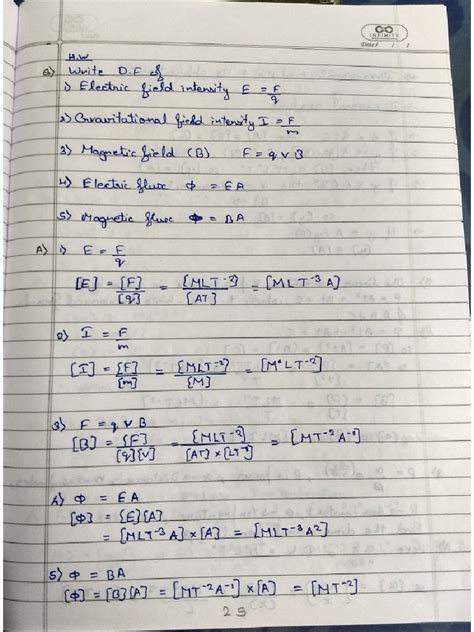 INFINITY
DATE / /
H.W
Q) Write D.F of
1) Electric field intensity E = F/q
2) Gravaritational field intensity I = F/m
3) Magnetic field (B) F = q v B
4) Electric flux Φ = EA
5) Magnetic flux Φ = BA
A) 1) E = F/q
[E] = [F]/[q] = [MLT⁻²]/[AT] = [MLT⁻³A]
2) I = F/m
[I] = [F]/[m] = [MLT⁻²]/[M] = [M⁰LT⁻²]
3) F = q v B
[B] = [F]/[q][v] = [MLT⁻²]/[AT]×[LT⁻¹] = [MT⁻²A⁻¹]
4) Φ = EA
[Φ] = [E][A]
= [MLT⁻³A]×[A] = [MLT⁻³A²]
5) Φ = BA
[Φ] = [B][A] = [MT⁻²A⁻¹]×[A] = [MT⁻²]
25